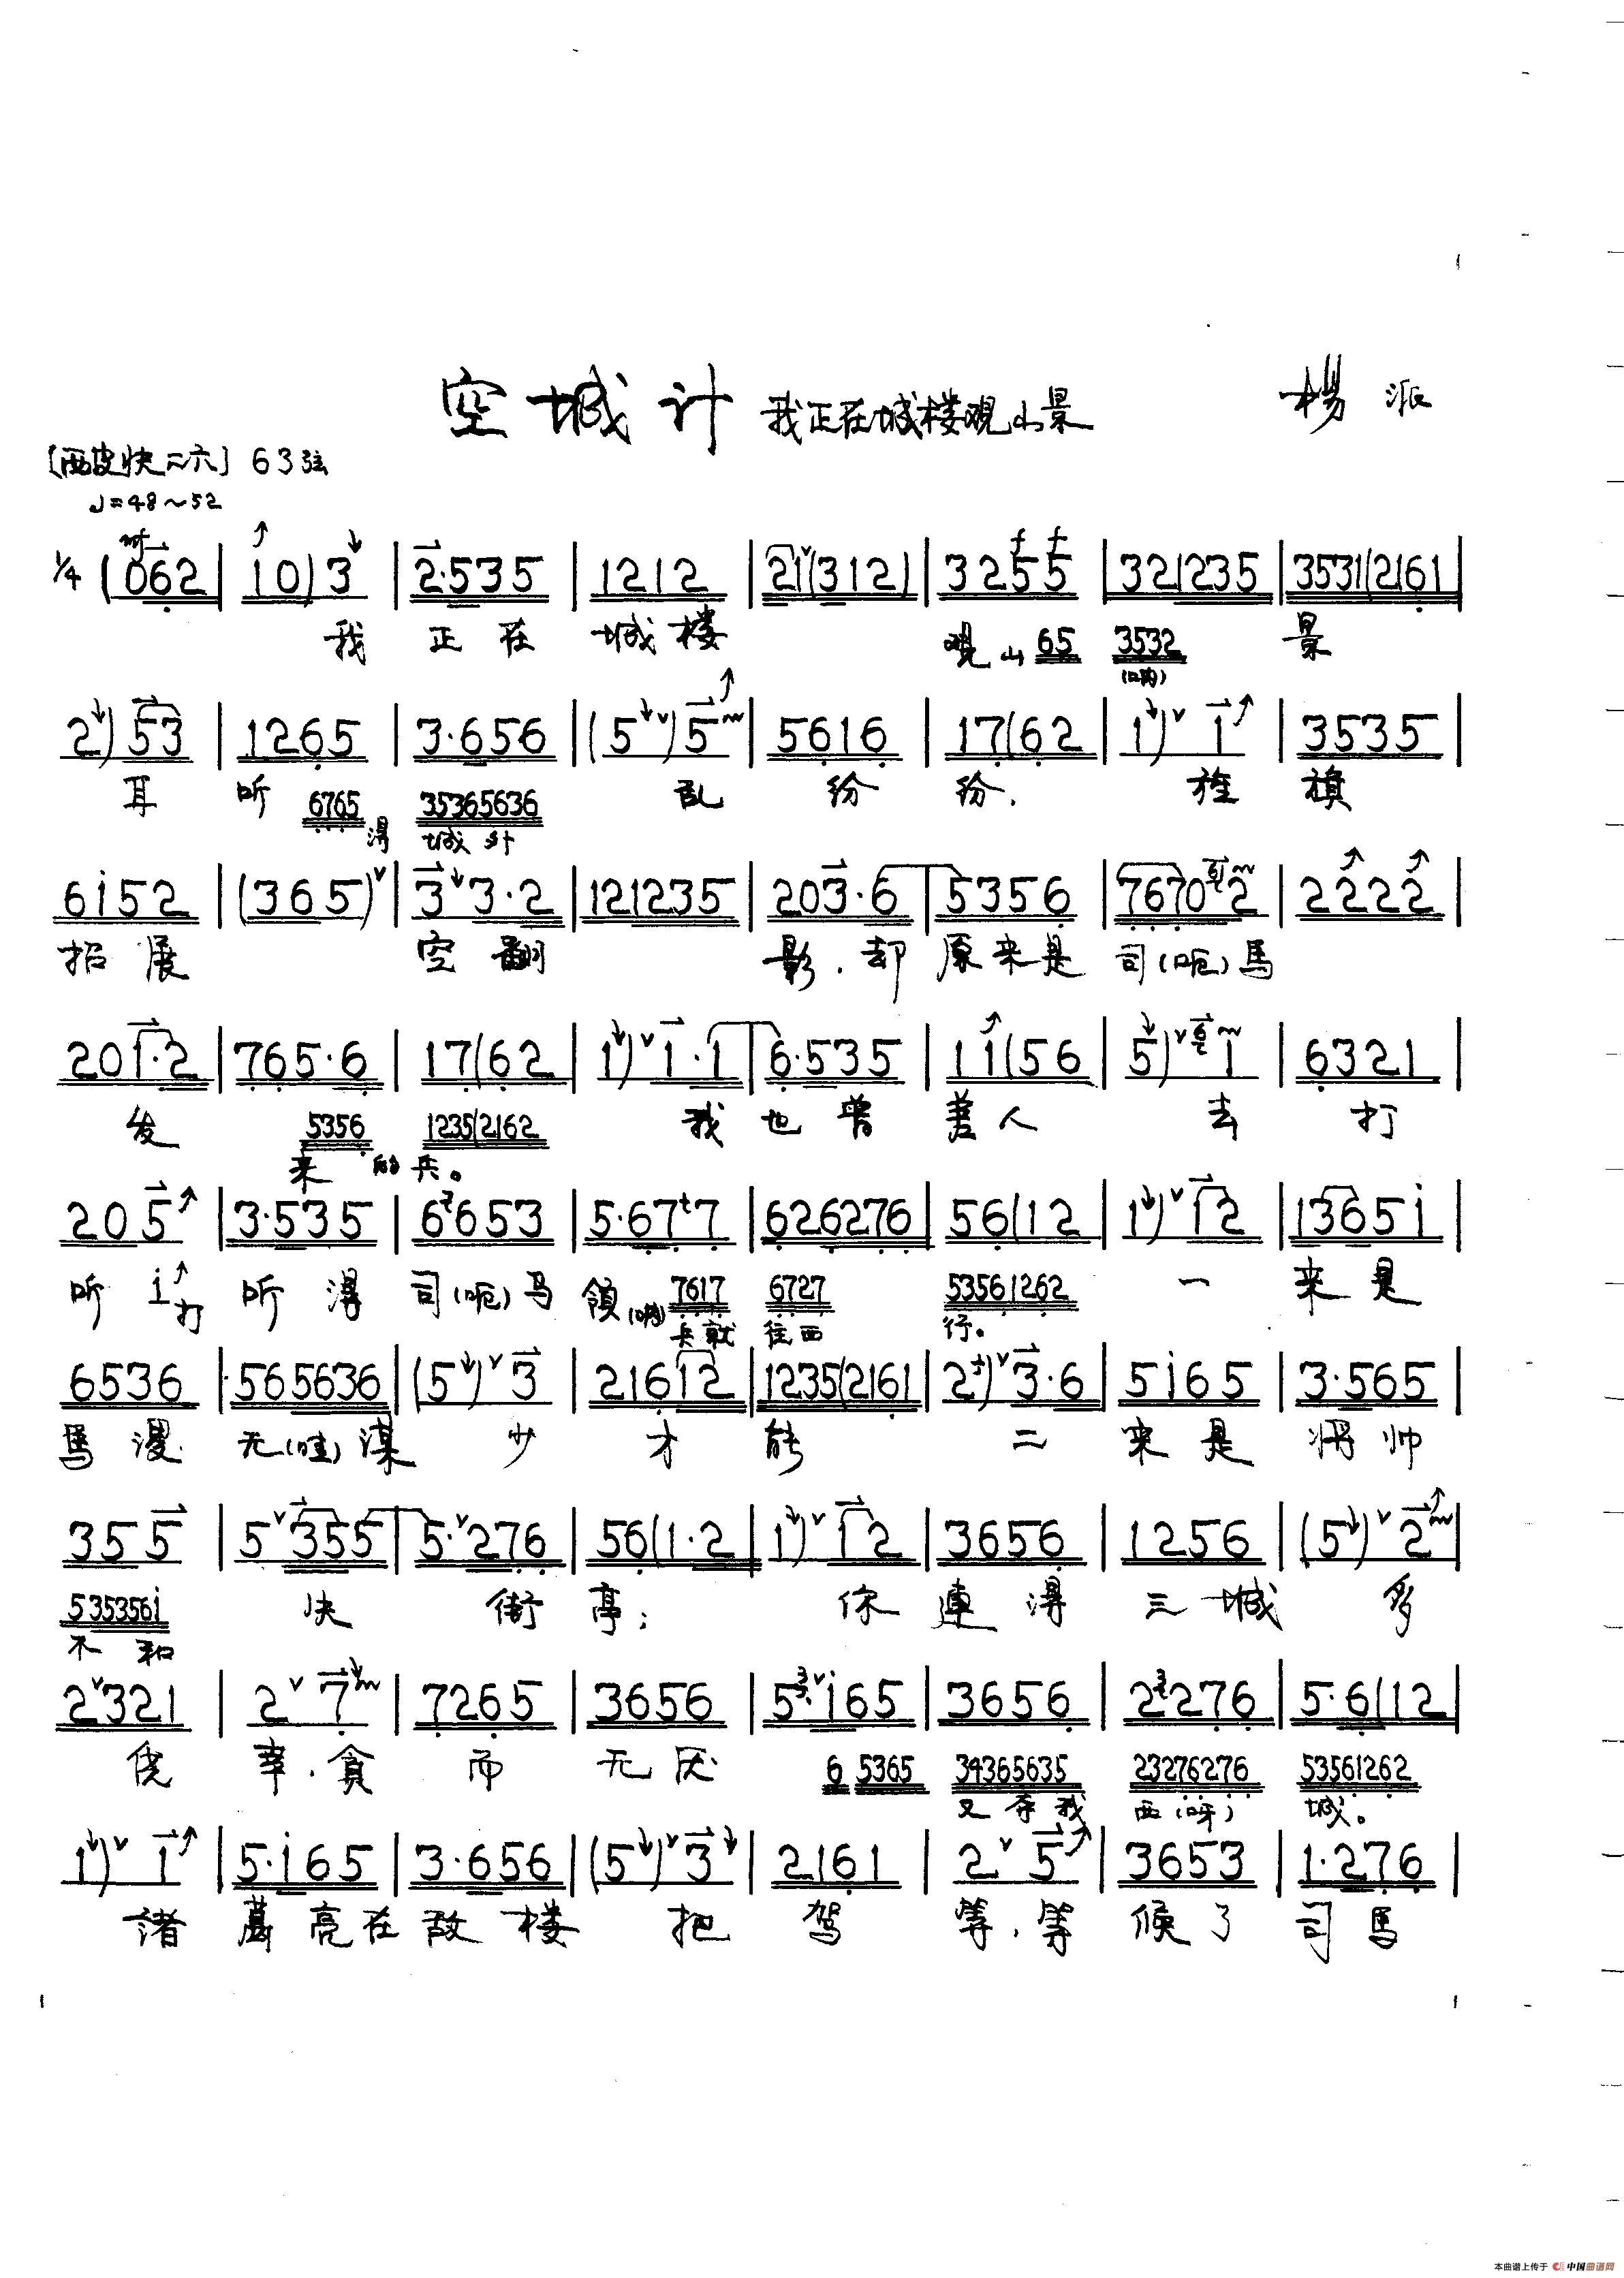 空城计 我正在城楼观山景 杨派
〔西皮快二六〕63弦
♩=48～52
1/4 (062 | 10)3 | 2·535 | 1212 | 21(312) | 3255 | 321235 | 3531(2161 |
我 正在 城楼 观山 65 3532 景
(呐)
2)53 | 1265 | 3·656 | (5)5 | 5616 | 17(62 | 1)1 | 3535 |
耳 听 6765 得 35365636 乱 纷 纷. 旌 旗
城外
6i52 | (365) | 33·2 | 121235 | 203·6 | 5356 | 7670 2 | 2222 |
招展 空翻 影.却 原来是 司(呃)馬
201·2 | 765·6 | 17(62 | 1)1·1 | 6·535 | 11(56 | 5)1 | 6321 |
发 5356 1235(2162 我 也曾 差人 去 打
来 的 兵。
205 | 3·535 | 6653 | 5·677 | 626276 | 56(12 | 1)12 | 13651 |
听 i打 听得 司(呃)马 领(呐) 7617 6727 53561262 一 来是
兵就 往西 行。
6536 | 565636 | (5)3 | 21612 | 1235(2161 | 2)3·6 | 5i65 | 3·565 |
馬谡 无(哇)谋 少 才 能 二 来是 将帅
355 | 5355 | 5·276 | 56(1·2 | 1)12 | 3656 | 1256 | (5)2 |
535356i 快 街 亭; 你 連得 三城 多
不和
2321 | 27 | 7265 | 3656 | 5i65 | 3656 | 2276 | 5·6(12 |
侥 幸.貪 而 无厌 6 5365 34365635 23276276 53561262
又夺我 西(呀) 城。
1)1 | 5·i65 | 3·656 | (5)3 | 2161 | 25 | 3653 | 1·276 |
諸 葛亮在 敌楼 把 驾 等.等 候了 司馬
本曲谱上传于 中国曲谱网